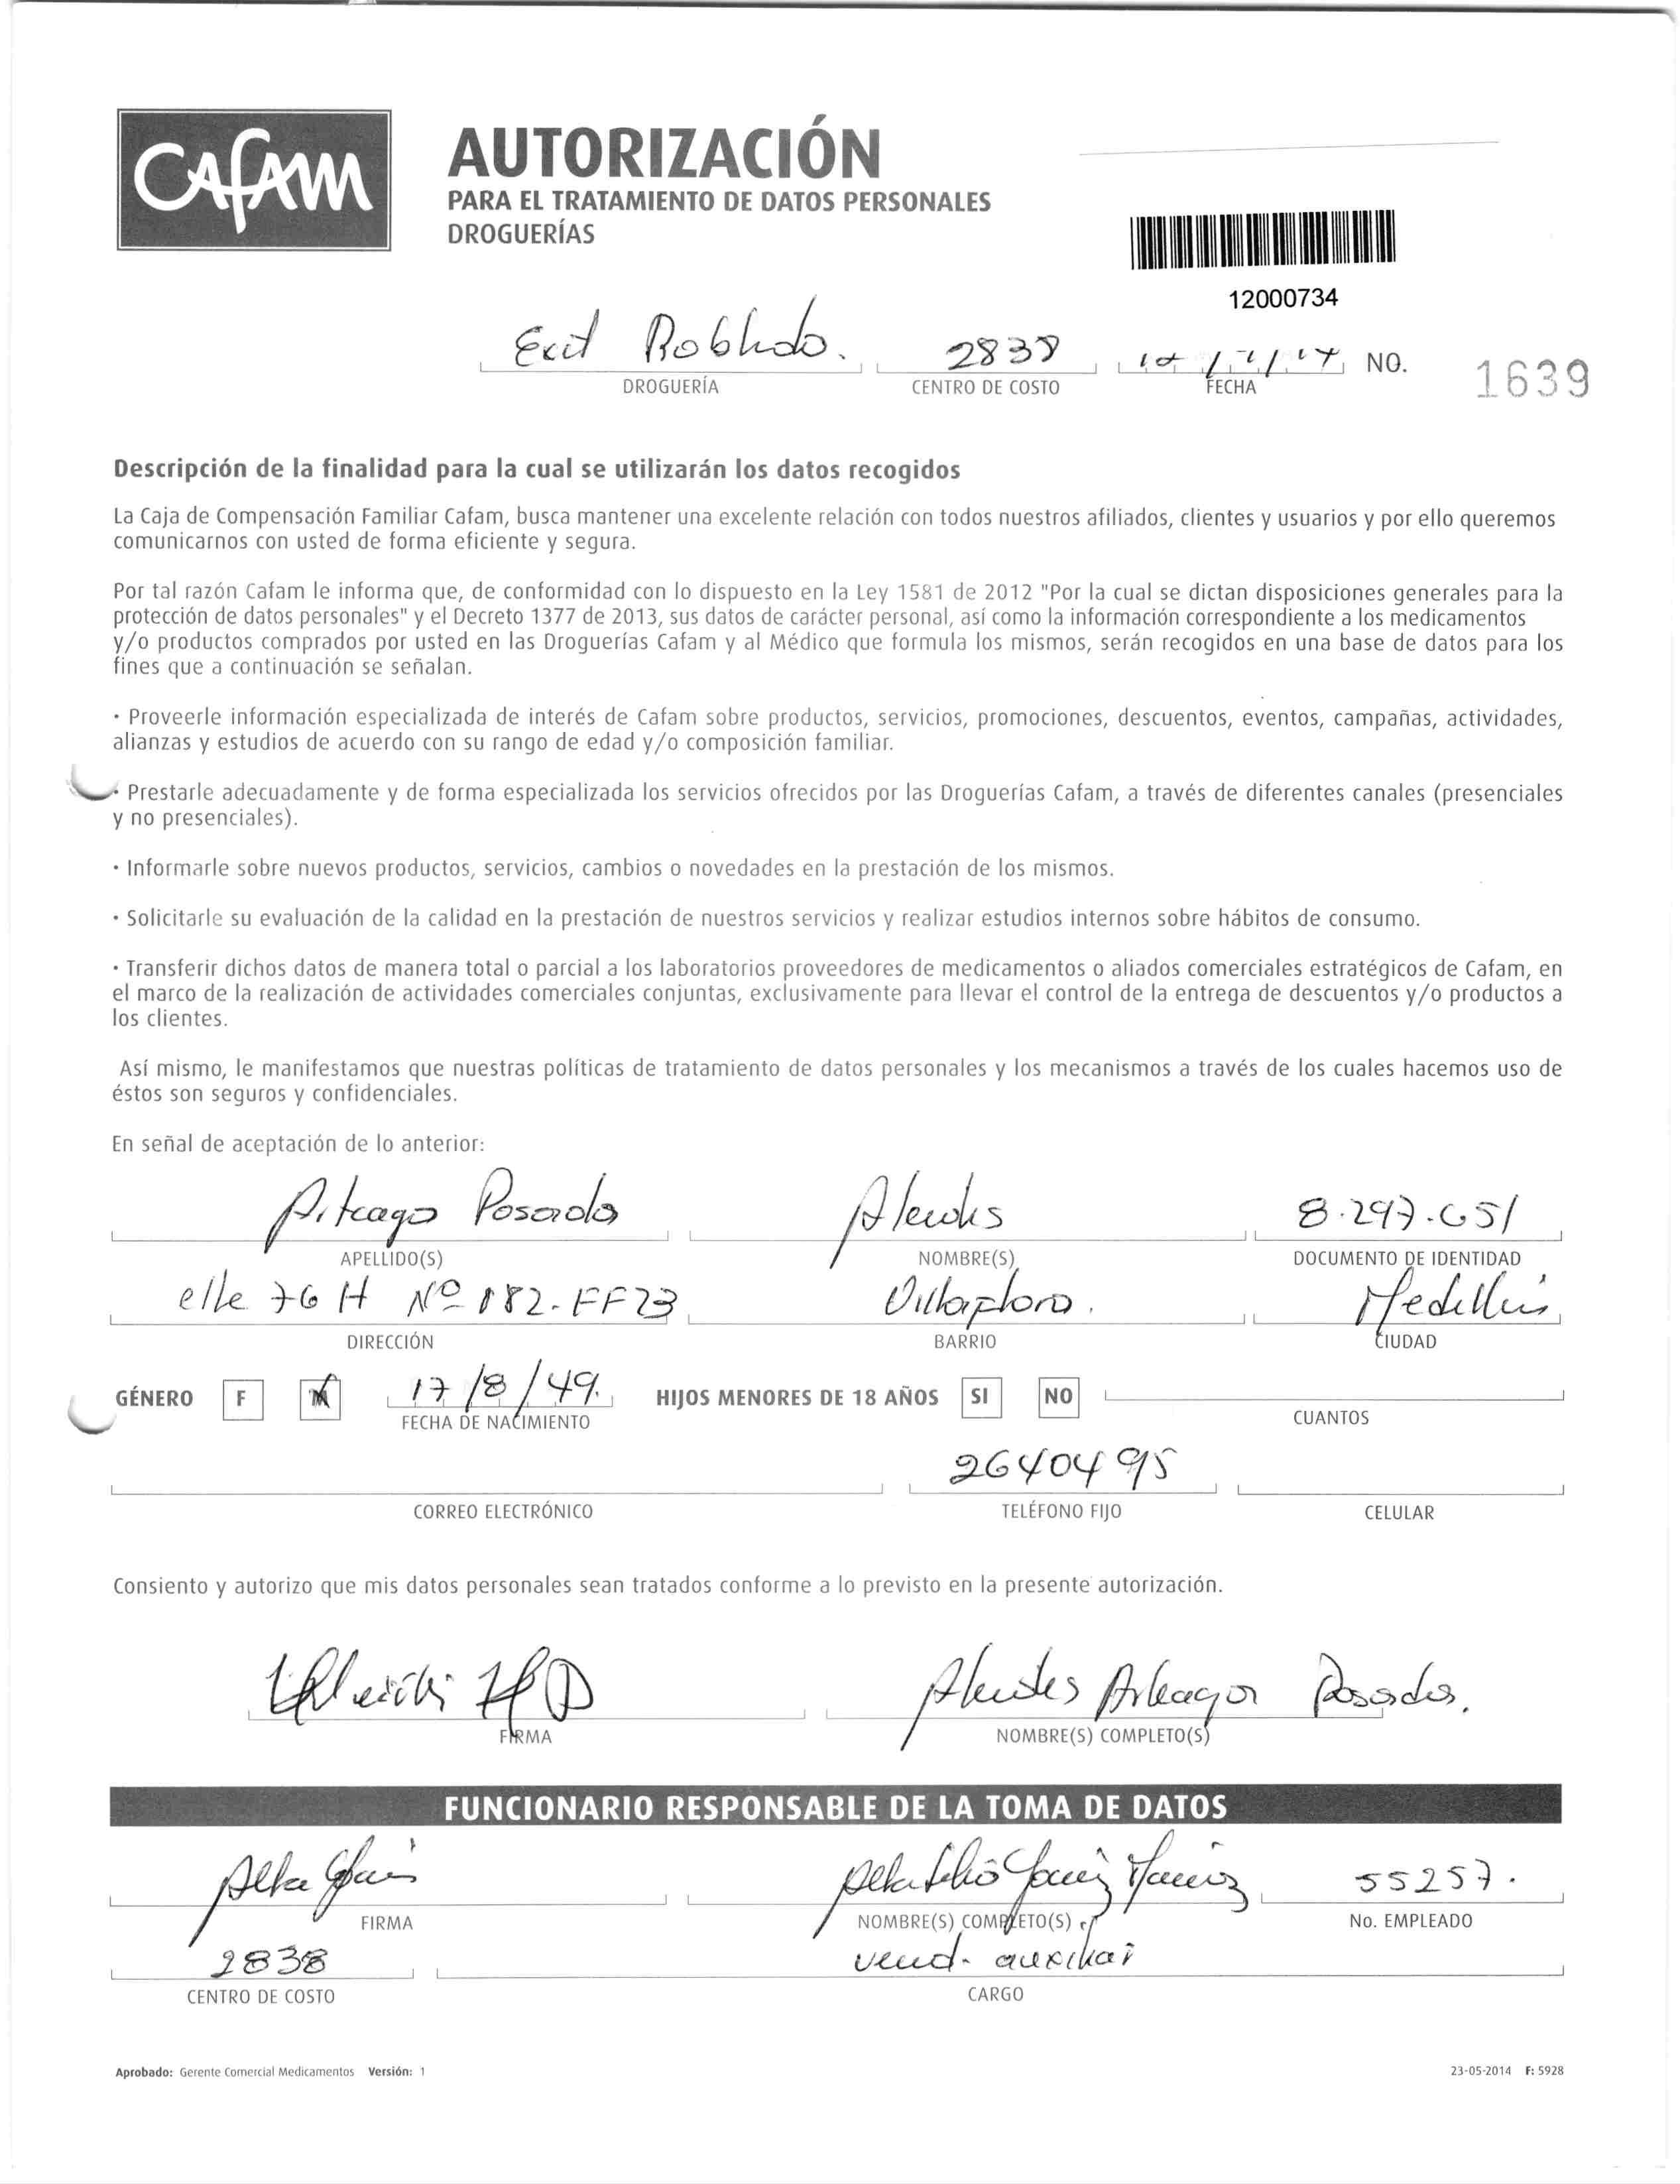 CAFAM
AUTORIZACIÓN
PARA EL TRATAMIENTO DE DATOS PERSONALES
DROGUERÍAS
12000734
Exit Robledo. 2838 NO. 1639
DROGUERÍA CENTRO DE COSTO FECHA
Descripción de la finalidad para la cual se utilizarán los datos recogidos
La Caja de Compensación Familiar Cafam, busca mantener una excelente relación con todos nuestros afiliados, clientes y usuarios y por ello queremos
comunicarnos con usted de forma eficiente y segura.
Por tal razón Cafam le informa que, de conformidad con lo dispuesto en la Ley 1581 de 2012 "Por la cual se dictan disposiciones generales para la
protección de datos personales" y el Decreto 1377 de 2013, sus datos de carácter personal, así como la información correspondiente a los medicamentos
y/o productos comprados por usted en las Droguerías Cafam y al Médico que formula los mismos, serán recogidos en una base de datos para los
fines que a continuación se señalan.
· Proveerle información especializada de interés de Cafam sobre productos, servicios, promociones, descuentos, eventos, campañas, actividades,
alianzas y estudios de acuerdo con su rango de edad y/o composición familiar.
· Prestarle adecuadamente y de forma especializada los servicios ofrecidos por las Droguerías Cafam, a través de diferentes canales (presenciales
y no presenciales).
· Informarle sobre nuevos productos, servicios, cambios o novedades en la prestación de los mismos.
· Solicitarle su evaluación de la calidad en la prestación de nuestros servicios y realizar estudios internos sobre hábitos de consumo.
· Transferir dichos datos de manera total o parcial a los laboratorios proveedores de medicamentos o aliados comerciales estratégicos de Cafam, en
el marco de la realización de actividades comerciales conjuntas, exclusivamente para llevar el control de la entrega de descuentos y/o productos a
los clientes.
Así mismo, le manifestamos que nuestras políticas de tratamiento de datos personales y los mecanismos a través de los cuales hacemos uso de
éstos son seguros y confidenciales.
En señal de aceptación de lo anterior:
Arteaga Posada 8.297.651
APELLIDO(S) NOMBRE(S) DOCUMENTO DE IDENTIDAD
clle 76 H Nº 182-FF23 Villaflora. Medellín
DIRECCIÓN BARRIO CIUDAD
GÉNERO F M 17/8/49. HIJOS MENORES DE 18 AÑOS SI NO
FECHA DE NACIMIENTO CUANTOS
2640495
CORREO ELECTRÓNICO TELÉFONO FIJO CELULAR
Consiento y autorizo que mis datos personales sean tratados conforme a lo previsto en la presente autorización.
Arteaga Posada.
FIRMA NOMBRE(S) COMPLETO(S)
FUNCIONARIO RESPONSABLE DE LA TOMA DE DATOS
55257.
FIRMA NOMBRE(S) COMPLETO(S) No. EMPLEADO
2838 vend. auxiliar
CENTRO DE COSTO CARGO
Aprobado: Gerente Comercial Medicamentos Versión: 1 23-05-2014 F: 5928